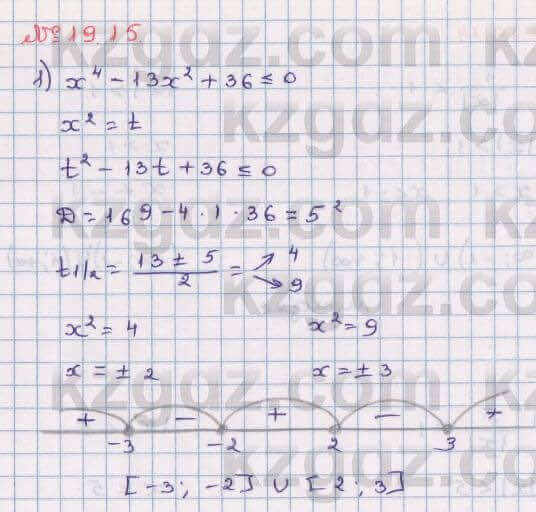 № 19.15
1) x⁴ - 13x² + 36 ≤ 0
x² = t
t² - 13t + 36 ≤ 0
D = 169 - 4 · 1 · 36 = 5²
t1/2 = (13 ± 5)/2 = ↗ 4 ↘ 9
x² = 4 x² = 9
x = ± 2 x = ± 3
+ - + - +
-3 -2 2 3
[-3; -2] ∪ [2; 3]
kzgdz.com